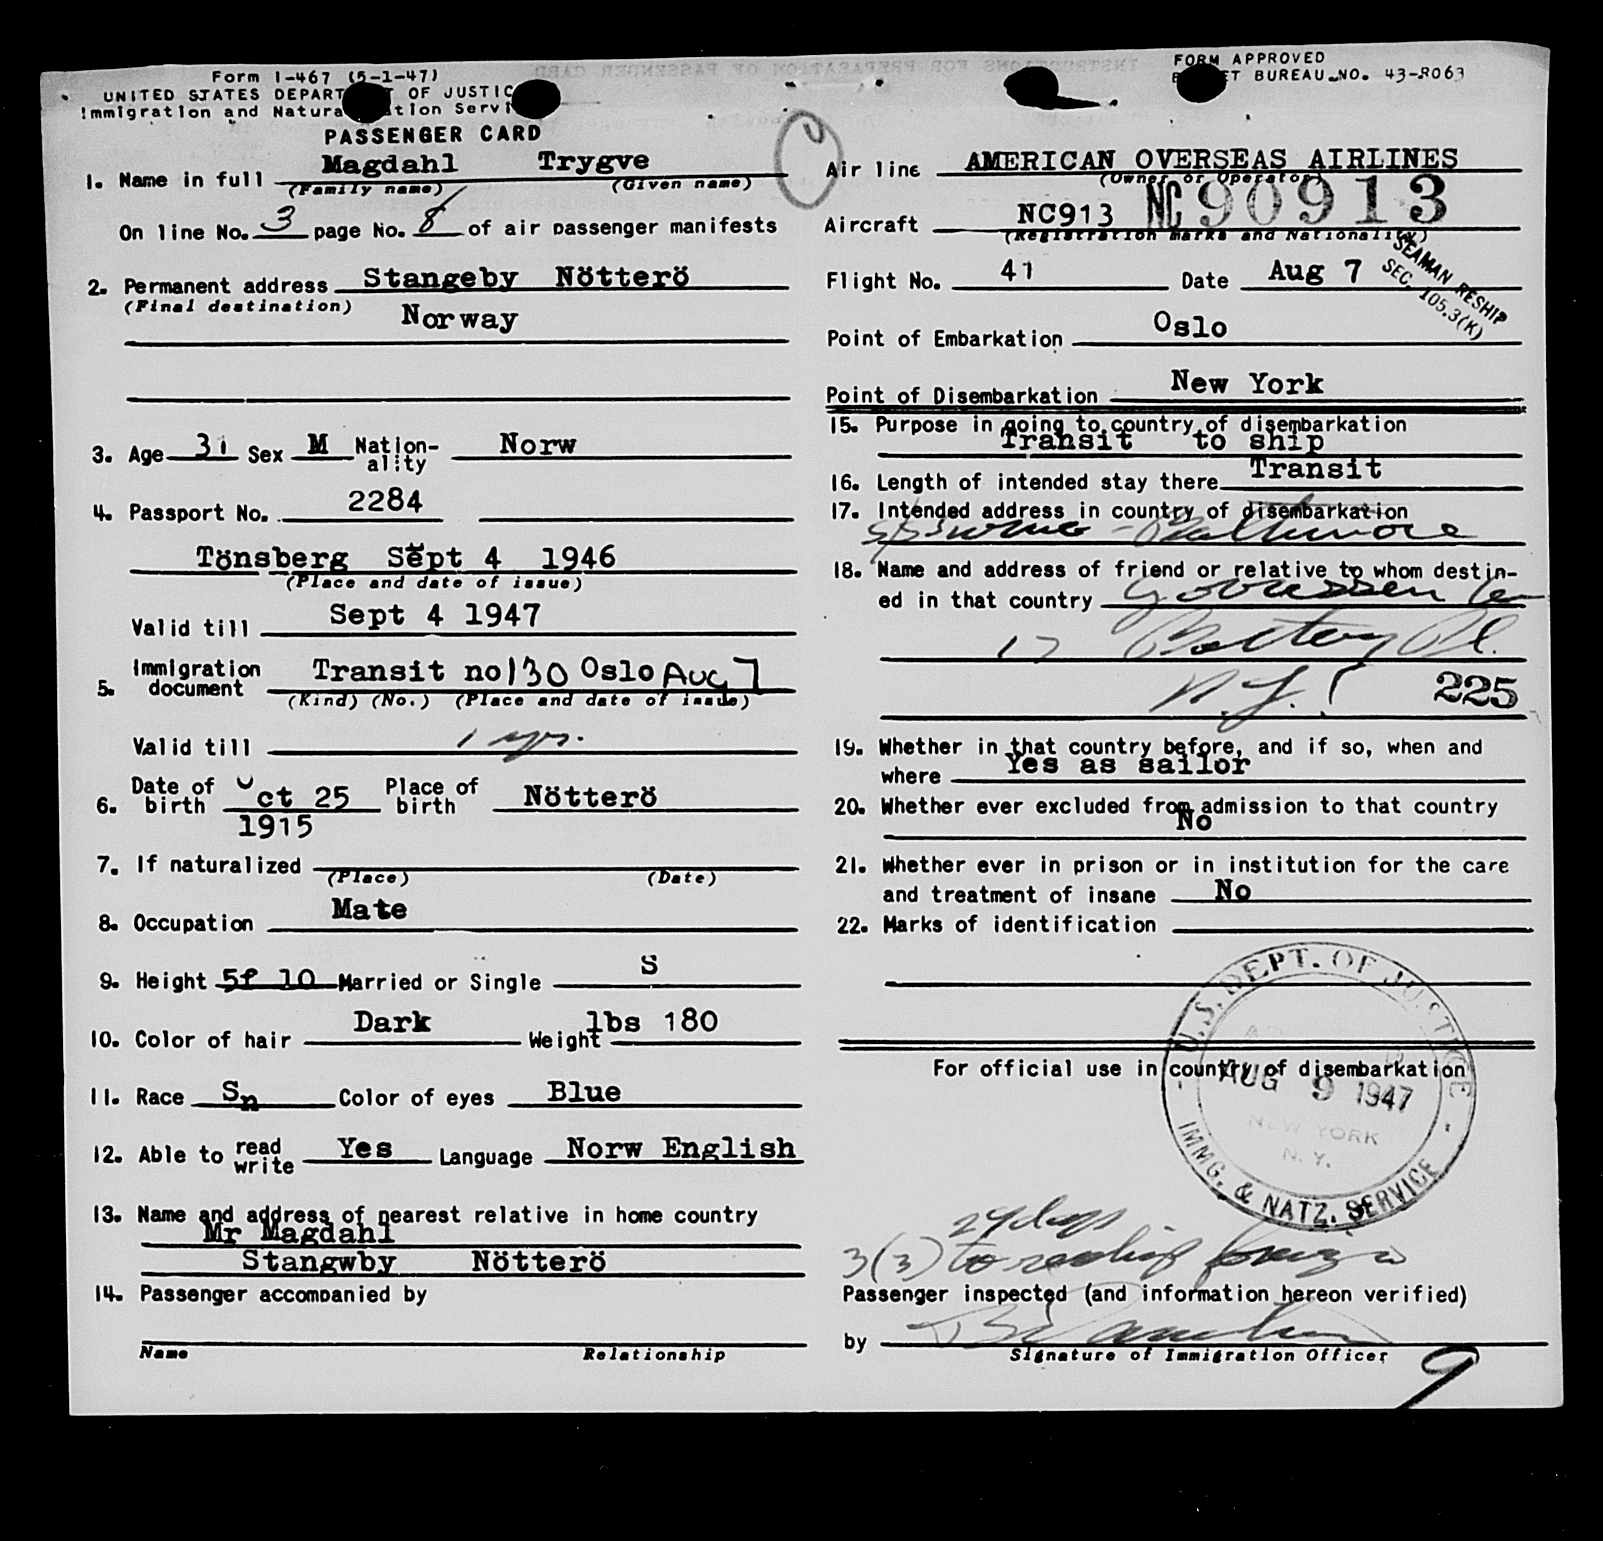 Form I-467 (5-1-47)
UNITED STATES DEPART T OF JUSTIC
Immigration and Natura tion Servi
PASSENGER CARD
1. Name in full Magdahl Trygve
(Family name) (Given name)
On line No. 3 page No. 8 of air passenger manifests
2. Permanent address Stangeby Nötterö
(Final destination) Norway
3. Age 31 Sex M Nation-ality Norw
4. Passport No. 2284
Tönsberg Sept 4 1946
(Place and date of issue)
Valid till Sept 4 1947
5. Immigration document Transit no 130 Oslo Aug 7
(Kind) (No.) (Place and date of issue)
Valid till 1 yr.
6. Date of birth Oct 25 1915 Place of birth Nötterö
7. If naturalized
(Place) (Date)
8. Occupation Mate
9. Height 5f 10 Married or Single S
10. Color of hair Dark Weight lbs 180
11. Race Sn Color of eyes Blue
12. Able to read write Yes Language Norw English
13. Name and address of nearest relative in home country
Mr Magdahl
Stangwby Nötterö
14. Passenger accompanied by
Name Relationship
FORM APPROVED
B ET BUREAU NO. 43-R063
Air line AMERICAN OVERSEAS AIRLINES
(Owner or Operator)
Aircraft NC913 NC90913
(Registration marks and Nationality)
SEAMAN RESHIP
SEC. 105.3(K)
Flight No. 41 Date Aug 7
Point of Embarkation Oslo
Point of Disembarkation New York
15. Purpose in going to country of disembarkation
Transit to ship
16. Length of intended stay there Transit
17. Intended address in country of disembarkation
Baltimore
18. Name and address of friend or relative to whom destin-
ed in that country
17 Battery Pl.
N.Y. 225
19. Whether in that country before, and if so, when and
where Yes as sailor
20. Whether ever excluded from admission to that country
No
21. Whether ever in prison or in institution for the care
and treatment of insane No
22. Marks of identification
For official use in country of disembarkation
U.S. DEPT. OF JUSTICE
AUG 9 1947
NEW YORK
N.Y.
IMMG. & NATZ. SERVICE
29 days
3(3) to reship
Passenger inspected (and information hereon verified)
by
Signature of Immigration Officer
9